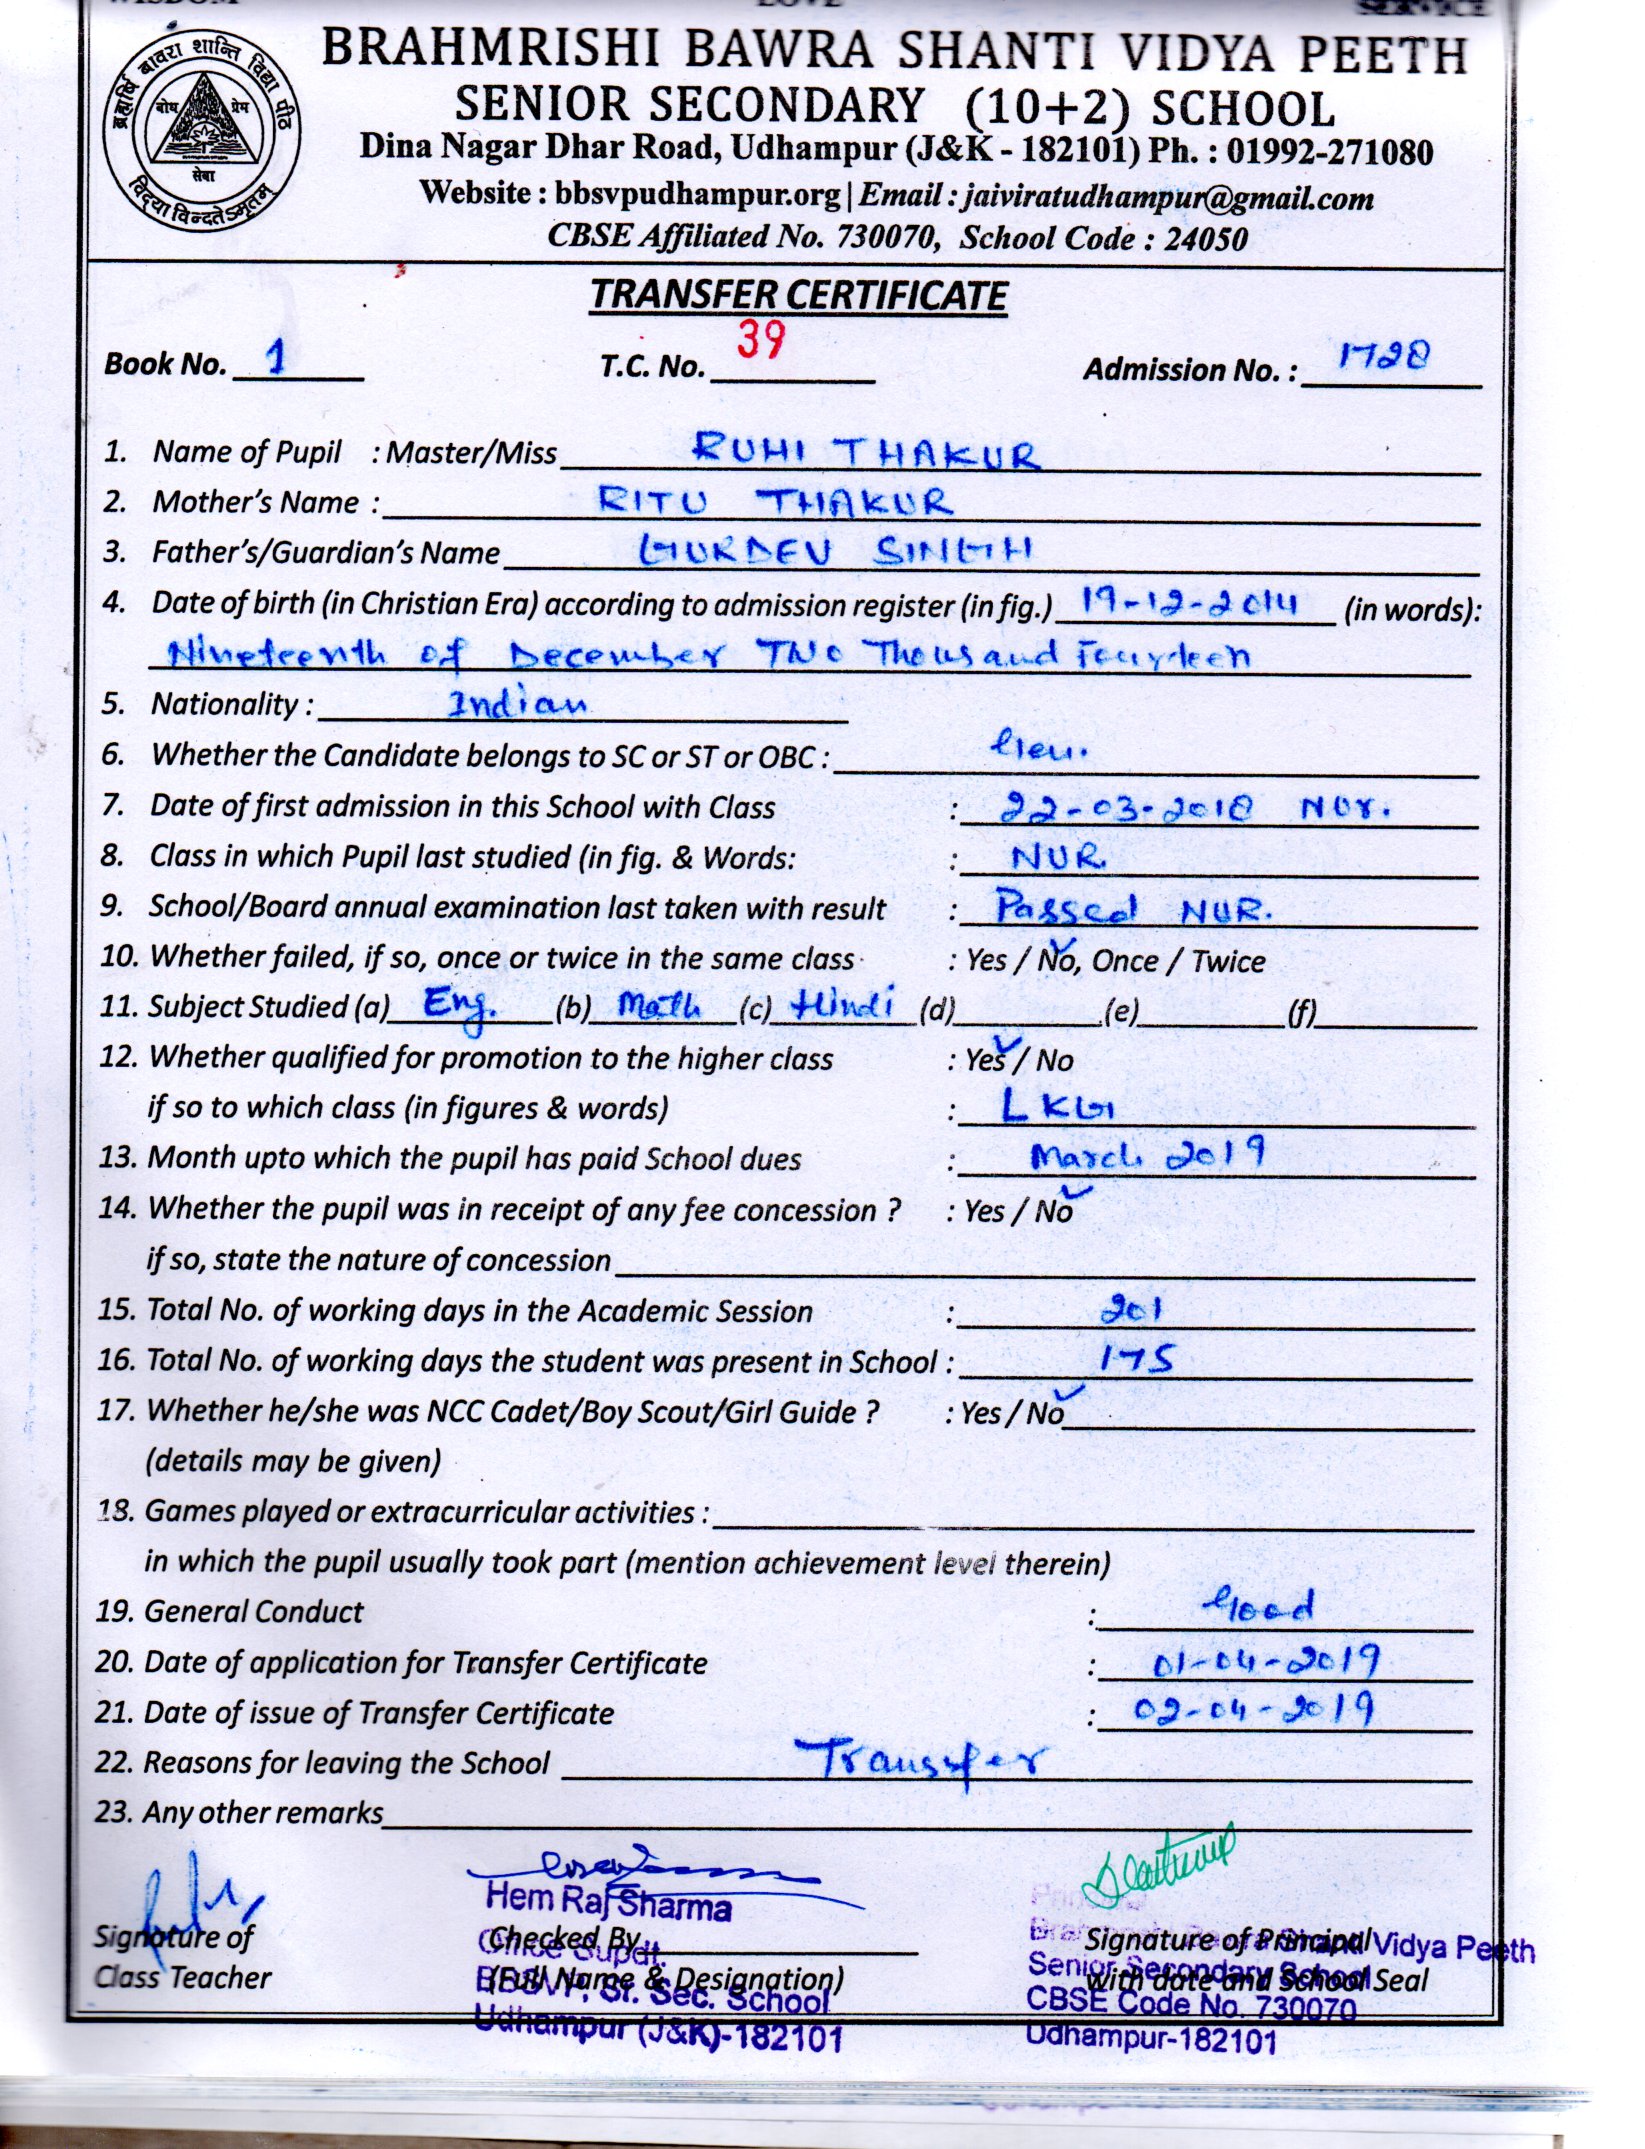 WISDOM LOVE SERVICE
ब्रह्मर्षि बावरा शान्ति विद्या पीठ
बोध प्रेम
सेवा
विद्यया विन्दतेऽमृतम्
BRAHMRISHI BAWRA SHANTI VIDYA PEETH
SENIOR SECONDARY (10+2) SCHOOL
Dina Nagar Dhar Road, Udhampur (J&K - 182101) Ph. : 01992-271080
Website : bbsvpudhampur.org | Email : jaiviratudhampur@gmail.com
CBSE Affiliated No. 730070, School Code : 24050
TRANSFER CERTIFICATE
Book No. 1 T.C. No. 39 Admission No. : 1728
1. Name of Pupil : Master/Miss RUHI THAKUR
2. Mother's Name : RITU THAKUR
3. Father's/Guardian's Name GURDEV SINGH
4. Date of birth (in Christian Era) according to admission register (in fig.) 19-12-2014 (in words):
Nineteenth of December Two Thousand Fourteen
5. Nationality : Indian
6. Whether the Candidate belongs to SC or ST or OBC : Gen.
7. Date of first admission in this School with Class : 22-03-2018 NUr.
8. Class in which Pupil last studied (in fig. & Words: : NUR.
9. School/Board annual examination last taken with result : Passed NUR.
10. Whether failed, if so, once or twice in the same class : Yes / No, Once / Twice
11. Subject Studied (a) Eng. (b) Math (c) Hindi (d) (e) (f)
12. Whether qualified for promotion to the higher class : Yes / No
if so to which class (in figures & words) : LKG
13. Month upto which the pupil has paid School dues : March 2019
14. Whether the pupil was in receipt of any fee concession ? : Yes / No
if so, state the nature of concession
15. Total No. of working days in the Academic Session : 201
16. Total No. of working days the student was present in School : 175
17. Whether he/she was NCC Cadet/Boy Scout/Girl Guide ? : Yes / No
(details may be given)
18. Games played or extracurricular activities :
in which the pupil usually took part (mention achievement level therein)
19. General Conduct : Good
20. Date of application for Transfer Certificate : 01-04-2019
21. Date of issue of Transfer Certificate : 02-04-2019
22. Reasons for leaving the School Transfer
23. Any other remarks
Hem Raj Sharma Principal
Signature of Checked By Signature of Principal
Office Supdt. Vidya Peeth
Class Teacher (Full Name & Designation) with date and School Seal
BBSVP, Sr. Sec. School Senior Secondary School
CBSE Code No. 730070
Udhampur (J&K)-182101 Udhampur-182101